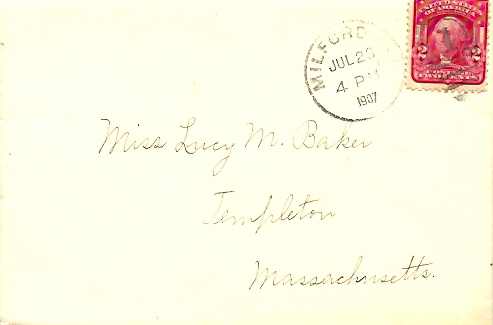 MILFORD
JUL 23
4 PM
1907
UNITED STATES
OF AMERICA
2 2
TWO CENTS
Miss Lucy M. Baker
Templeton
Massachusetts.